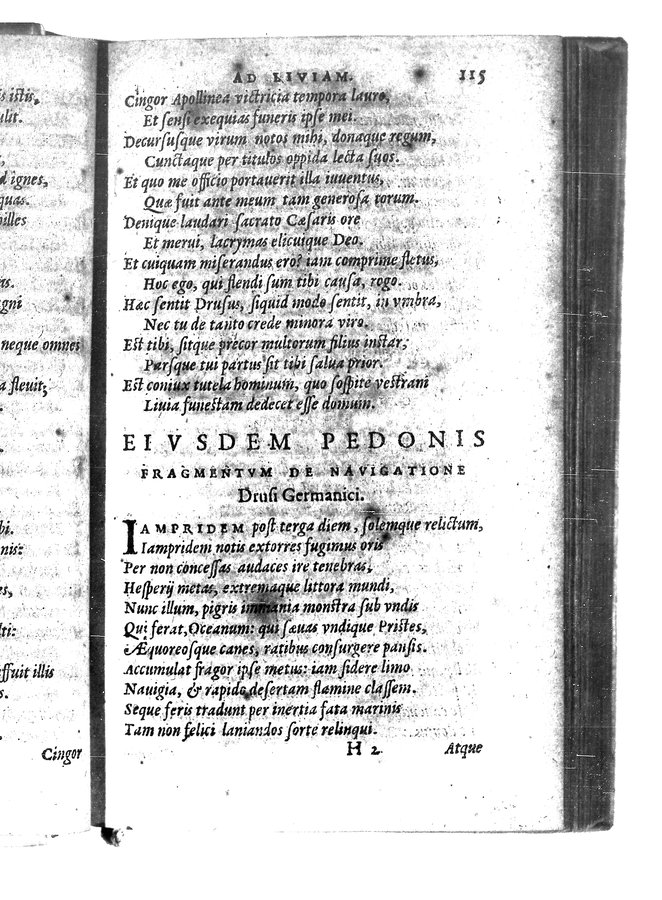 s istis,
ulit.
d ignes,
quas.
pilles
as.
gni
neque omnes
a fleuit;
bi.
nis:
es,
lti:
ffuit illis
s.
Cingor
AD LIVIAM. 115
Cingor Apollinea victricia tempora lauro,
Et sensi exequias funeris ipse mei.
Decursusque virum notos mihi, donaque regum,
Cunctaque per titulos oppida lecta suos.
Et quo me officio portauerit illa iuuentus,
Quæ fuit ante meum tam generosa torum.
Denique laudari sacrato Cæsaris ore
Et merui, lacrymas elicuique Deo.
Et cuiquam miserandus ero? iam comprime fletus,
Hoc ego, qui flendi sum tibi causa, rogo.
Hæc sentit Drusus, siquid modo sentit, in vmbra,
Nec tu de tanto crede minora viro.
Est tibi, sitque precor multorum filius instar,
Parsque tui partus sit tibi salua prior.
Est coniux tutela hominum, quo sospite vestram
Liuia funestam dedecet esse domum.
EIVSDEM PEDONIS
FRAGMENTVM DE NAVIGATIONE
Drusi Germanici.
IAMPRIDEM post terga diem, solemque relictum,
Iampridem notis extorres fugimus oris
Per non concessas audaces ire tenebras,
Hesperij metas, extremaque littora mundi,
Nunc illum, pigris immania monstra sub vndis
Qui ferat, Oceanum: qui sæuas vndique Pristes,
Æquoreosque canes, ratibus consurgere pansis.
Accumulat fragor ipse metus: iam sidere limo
Nauigia, & rapido desertam flamine classem.
Seque feris tradunt per inertia fata marinis
Tam non felici laniandos sorte relinqui.
H 2 Atque